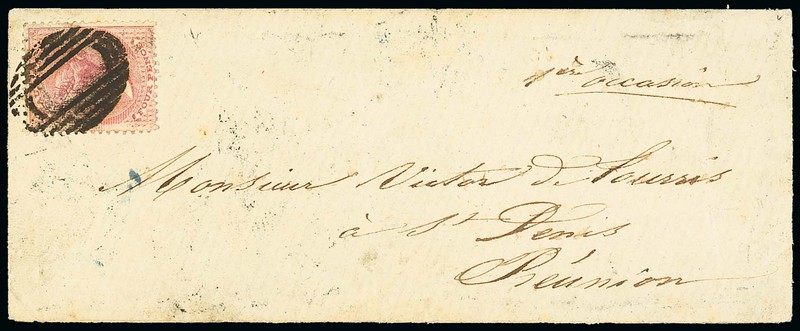 FOUR PENCE
1ère occasion
Monsieur Victor de Sourris
à St Denis
Réunion